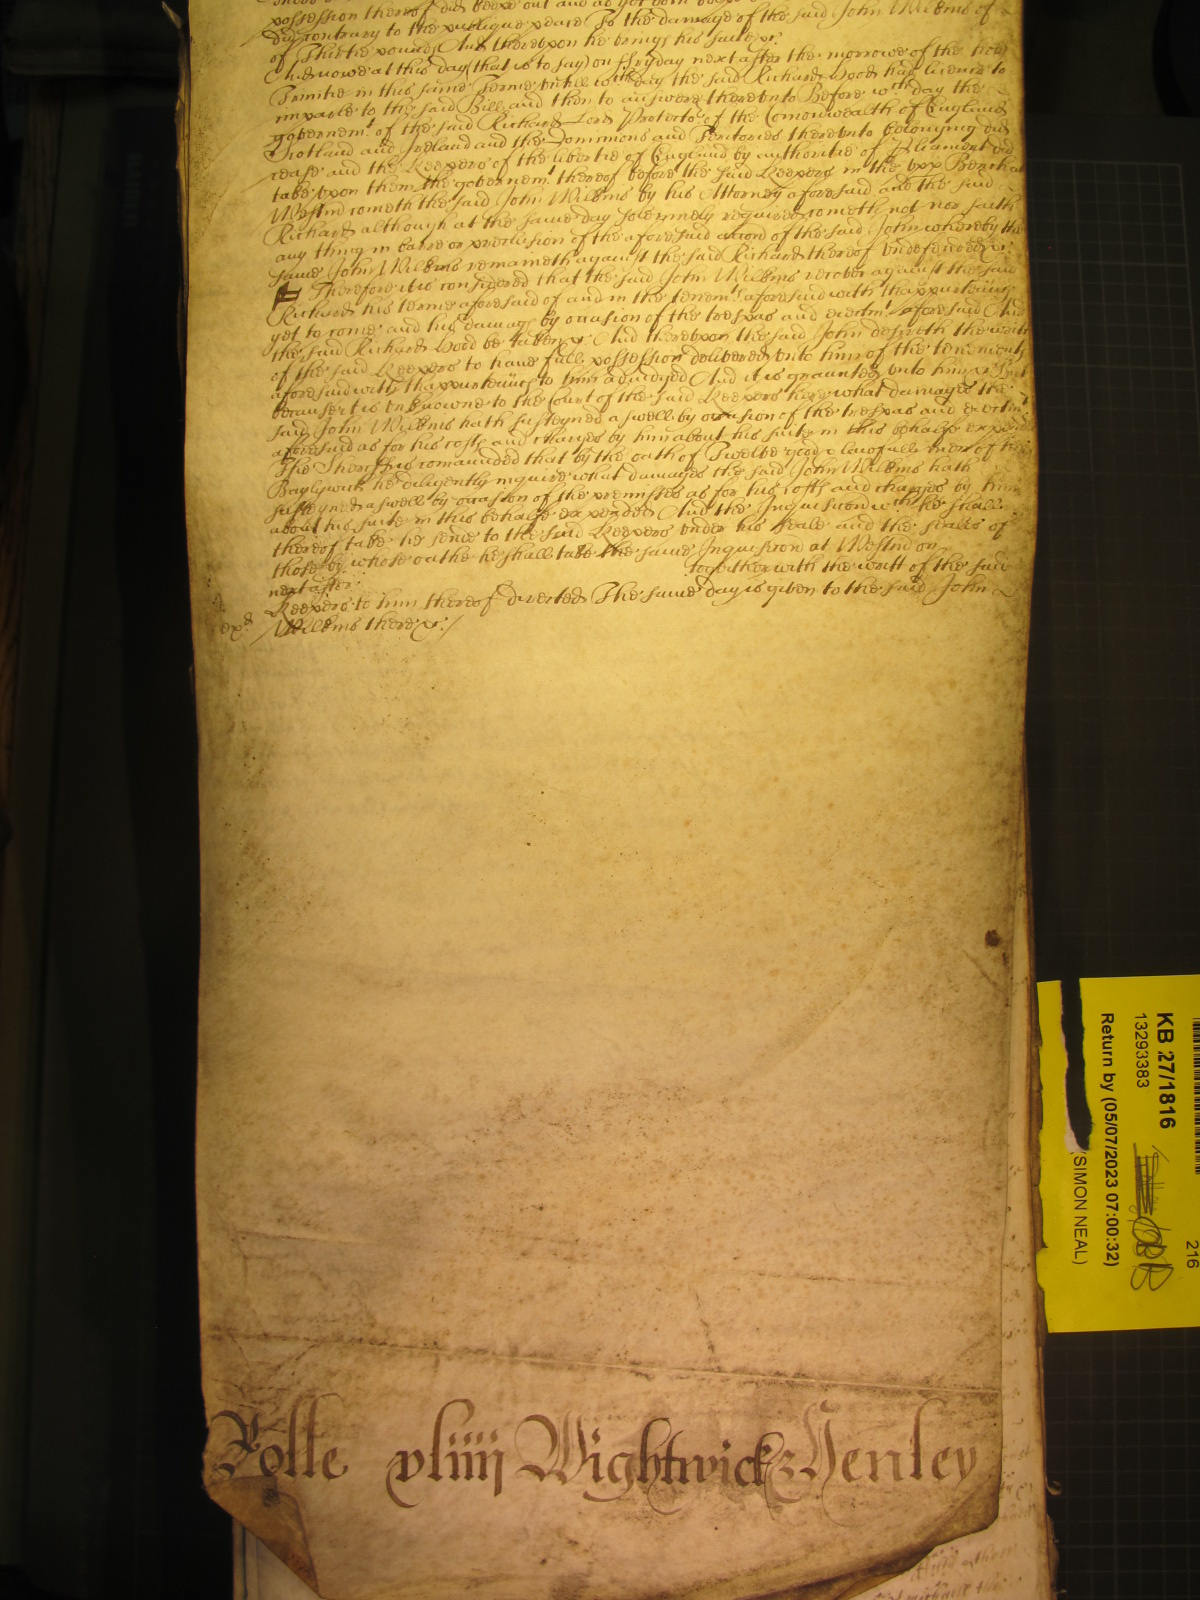 possession thereof did keepe out and as yet doth
did contrary to the publique peace To the damage of the said John Wilkins of
of Thirtie pounds And thereupon he brings his suite &c:
And nowe at this day (that is to say) on Fryday next after the morrowe of the holy
Trinitie in this same Terme untill wch day the said Richard Hood had licence to
imparle to the said Bill and then to answere thereunto Before wch day the
governemt of the said Richard Lord Protector of the Comonwealth of England
Scotland and Ireland and the Dominions and Territories thereunto belonging did
cease and the Keepers of the libertie of England by authoritie of Parliament did
take upon them the governemt thereof before the said Keepers in the upp Bench at
Westm cometh the said John Wilkins by his Attorney aforesaid and the said
Richard although at the same day solemnely required cometh not nor saith
any thing in barre or preclusion of the aforesaid accon of the said John whereby the
same John Wilkins remaineth against the said Richard thereof undefended &c:
Therefore it is considered that the said John Wilkins recover against the said
Richard his terme aforesaid of and in the tenemts aforesaid with thappurtenncs
yet to come and his damags by occasion of the trespas and eiectmt aforesaid And
the said Richard Hood be taken &c: And thereupon the said John desireth the writt
of the said Keepers to have full possession delivered unto him of the tenements
aforesaid with thappurtenncs to him adiudged And it is graunted unto him &c: But
because it is unknowne to the Court of the said Keepers here what damages the
said John Wilkins hath susteyned aswell by occasion of the trespas and eiectmt
aforesaid as for his costs and charges by him about his suite in this behalfe expended
The Sheriff is comaunded that by the oath of Twelve good & lawfull men of his
Baylywick he diligently inquire what damages the said John Wilkins hath
susteyned aswell by occasion of the premisses as for his costs and charges by him
about his suite in this behalfe expended And the Inquisicion wch he shall
thereof take he send to the said Keepers under his seale and the seales of
those by whose oathe he shall take the same Inquisicon at Westm on
next after together with the writt of the said
Keepers to him thereof directed The same day is given to the said John
exd Wilkins there &c:/
Rolle xliiij Wightwick & Henley
KB 27/1816
13293383
Return by (05/07/2023 07:00:32)
(SIMON NEAL)
216